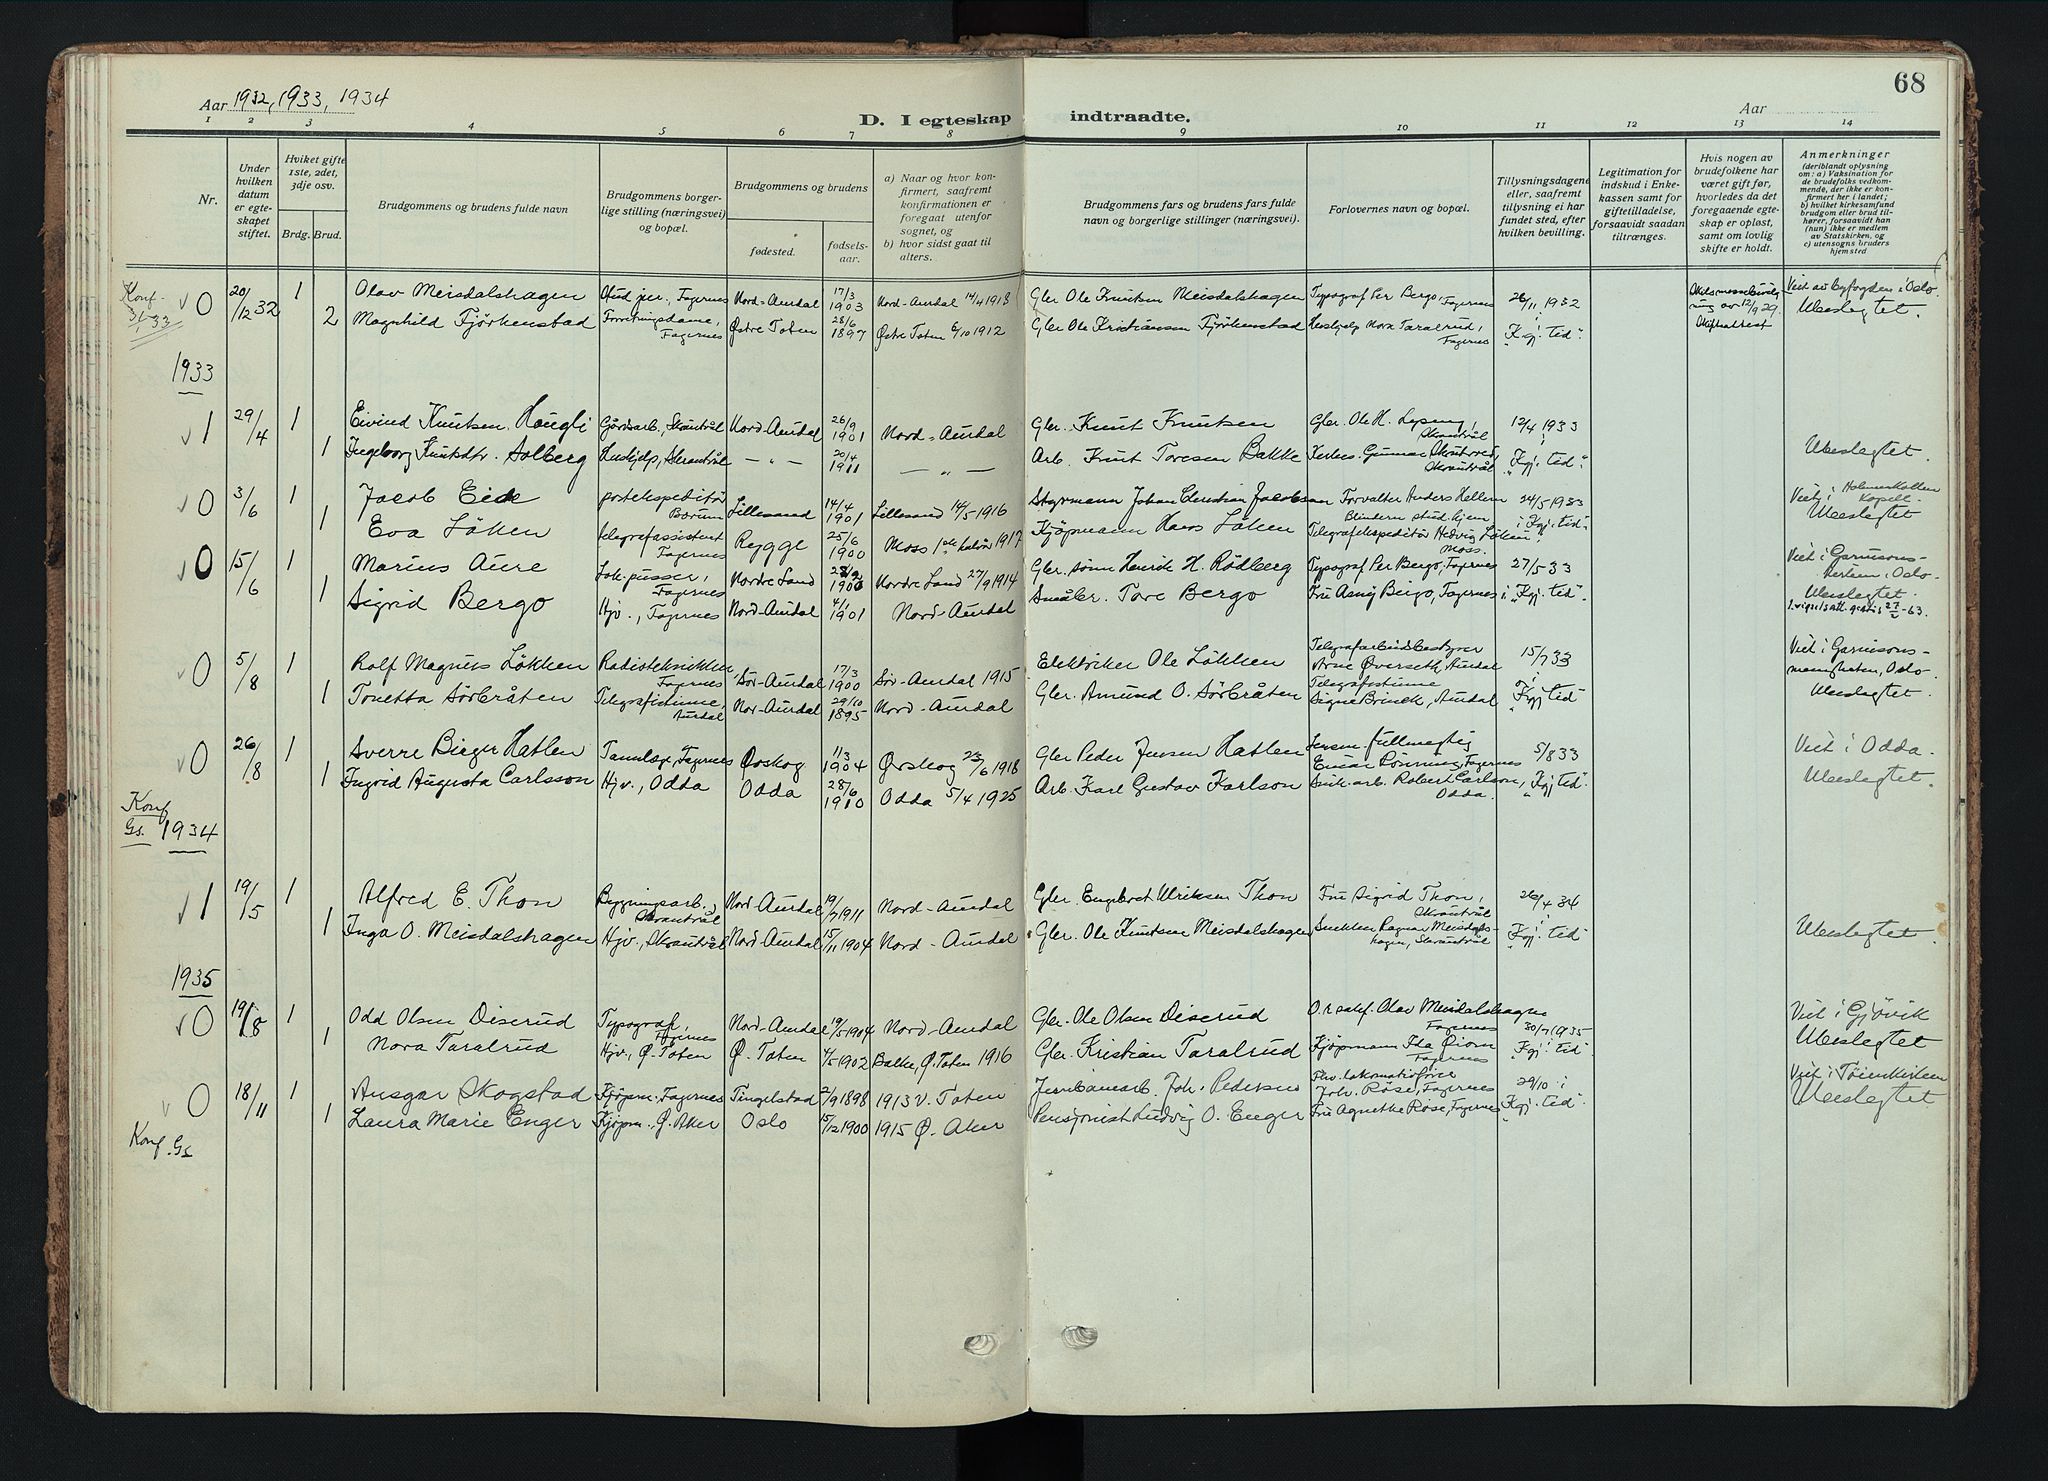 68
Aar 1932, 1933, 1934
D. I egteskap indtraadte.
Aar
1 2 3 4 5 6 7 8 9 10 11 12 13 14
Nr.
Under hvilken datum er egteskapet stiftet.
Hviket gifte 1ste, 2det, 3dje osv.
Brdg. Brud.
Brudgommens og brudens fulde navn
Brudgommens borgerlige stilling (næringsvei) og bopæl.
Brudgommens og brudens
fødested.
fødselsaar.
a) Naar og hvor konfirmert, saafremt konfirmationen er foregaat utenfor sognet, og
b) hvor sidst gaat til alters.
Brudgommens fars og brudens fars fulde navn og borgerlige stillinger (næringsvei).
Forlovernes navn og bopæl.
Tillysningsdagene eller, saafremt tillysning ei har fundet sted, efter hvilken bevilling.
Legitimation for indskud i Enkekassen samt for giftetilladelse, forsaavidt saadan tiltrænges.
Hvis nogen av brudefolkene har været gift før, hvorledes da det foregaaende egteskap er opløst, samt om lovlig skifte er holdt.
Anmerkninger
(deriblandt oplysning om: a) Vaksination for de brudefolks vedkommende, der ikke er konfirmert her i landet; b) hvilket kirkesamfund brudgom eller brud tilhører, forsaavidt han (hun) ikke er medlem av Statskirken, og c) utensogns bruders hjemsted
Konf. 3/1-33
0 20/12 32 1 Olav Meisdalshagen Fagernes Nord-Aurdal 17/3 1903 Nord-Aurdal 14/4 1918 Gbr. Ole Knutsen Meisdalshagen Typograf Per Bergo, Fagernes 26/11 1932 Viet av byfogden i Oslo.
2 Magnhild Fjørkenstad Forretningsdame, Fagernes Østre Toten 28/6 1897 Østre Toten 6/10 1912 Gbr. Ole Kristiansen Fjørkenstad Nora Taralrud, Fagernes "Kgj. tid" 12/9 29. Skifteattest Ubeslegtet.
1933
1 29/4 1 Eivind Knutsen Haugli Gårdsarb., Skrautvål Nord-Aurdal 26/9 1901 Nord-Aurdal Gbr. Knut Knutsen Gbr. Ole H. Skrautvål 12/4 1933
1 Ingeborg Knutsdtr. Solberg Hushjelp, Skrautvål — " — 20/4 1911 — " — Arb. Knut Toresen Bakke Gunnar Skrautvål "Kgj. tid". Ubeslegtet.
0 3/6 1 Jacob Eide postekspeditør Bærum Lillesand 14/4 1901 Lillesand 14/5 1916 Styrmann Johan Christian Jacobsen Forvalter Anders Hellem Blindern stud. hjem 24/5 1933 Viet i Holmenkollen Kapell.
1 Eva Løken telegrafassistent Fagernes Rygge 25/6 1900 Moss 1917 Kjøpmann Hans Løken Telegrafekspeditør Hedvig Løken, Moss. i "Kgj. tid" Ubeslegtet
0 15/6 1 Marius Aure Lok.pusser, Fagernes Nordre Land Nordre Land 27/9 1914 Gbr. sønn Henrik H. Rødberg Typograf Per Bergo, Fagernes 27/5 33 Viet i Garnisonskirken, Oslo.
1 Sigrid Bergo Hjv., Fagernes Nord-Aurdal 4/1 1901 Nord-Aurdal Småbr. Tore Bergo Fru Bergo, Fagernes i "Kgj. tid". Ubeslegtet.
0 5/8 1 Rolf Magnus Løkken Radiotekniker Fagernes Sør-Aurdal 17/3 1900 Sør-Aurdal 1915 Elektriker Ole Løkken Telegrafarbeidsbestyrer Arne Øverseth, Aurdal 15/7 33 Viet i Garnisonsmenigheten, Oslo.
1 Tonetta Sørbråten Telegrafistinne, Aurdal Nor-Aurdal 29/10 1895 Nord-Aurdal Gbr. Amund O. Sørbråten Telegrafistinne Signe Aurdal i "Kgj. tid" Ubeslegtet.
0 26/8 1 Sverre Birger Hatlen Tannlege, Fagernes Ørskog 11/3 1904 Ørskog 23/6 1918 Gbr. Peder Jensen Hatlen fullmegtig Einar Rønning, Fagernes 5/8 33 Viet i Odda.
1 Ingrid Augusta Carlsson Hjv., Odda Odda 28/6 1910 Odda 5/4 1925 Arb. Karl Gustav Karlson Robert Carlson, Odda. i "Kgj. tid" Ubeslegtet.
Konf Gs. 1934
1 19/5 1 Alfred E. Thon Bygningsarb., Skrautvål Nord-Aurdal 19/7 1911 Nord-Aurdal Gbr. Engebret Ulriksen Thon Fru Sigrid Thon, Skrautvål 26/4 34
1 Inga O. Meisdalshagen Hjv., Skrautvål Nord-Aurdal 15/11 1904 Nord-Aurdal Gbr. Ole Knutsen Meisdalshagen Snekker Ragnar Meisdalshagen, Skrautvål i "Kgj. tid" Ubeslegtet.
1935
0 19/8 1 Odd Olsen Diserud Typograf, Fagernes Nord-Aurdal 19/5 1904 Nord-Aurdal Gbr. Ole Olsen Diserud O.r.sakf. Olav Meisdalshagen Fagernes 30/7 1935 Viet i Gjøvik
1 Nora Taralrud Hjv., Ø. Toten Ø. Toten 4/5 1902 Balke, Ø. Toten 1916 Gbr. Kristian Taralrud Kjøpmann Fagernes "Kgj. i tid" Ubeslegtet
0 18/11 1 Ansgar Skogstad Kjøpm. Fagernes Tingelstad 2/9 1898 1913 V. Toten Jernbanearb. Joh. Pedersen Fhv. lokomotivfører Joh. Røse, Fagernes 29/10 i Viet i Tøienkirken
1 Laura Marie Enger Kjøpm., Ø. Aker Oslo 15/12 1900 1915 Ø. Aker Pensjonist Ludvig O. Enger Fru Agnethe Røse, Fagernes "Kgj. tid". Ubeslegtet.
Konf. Gs